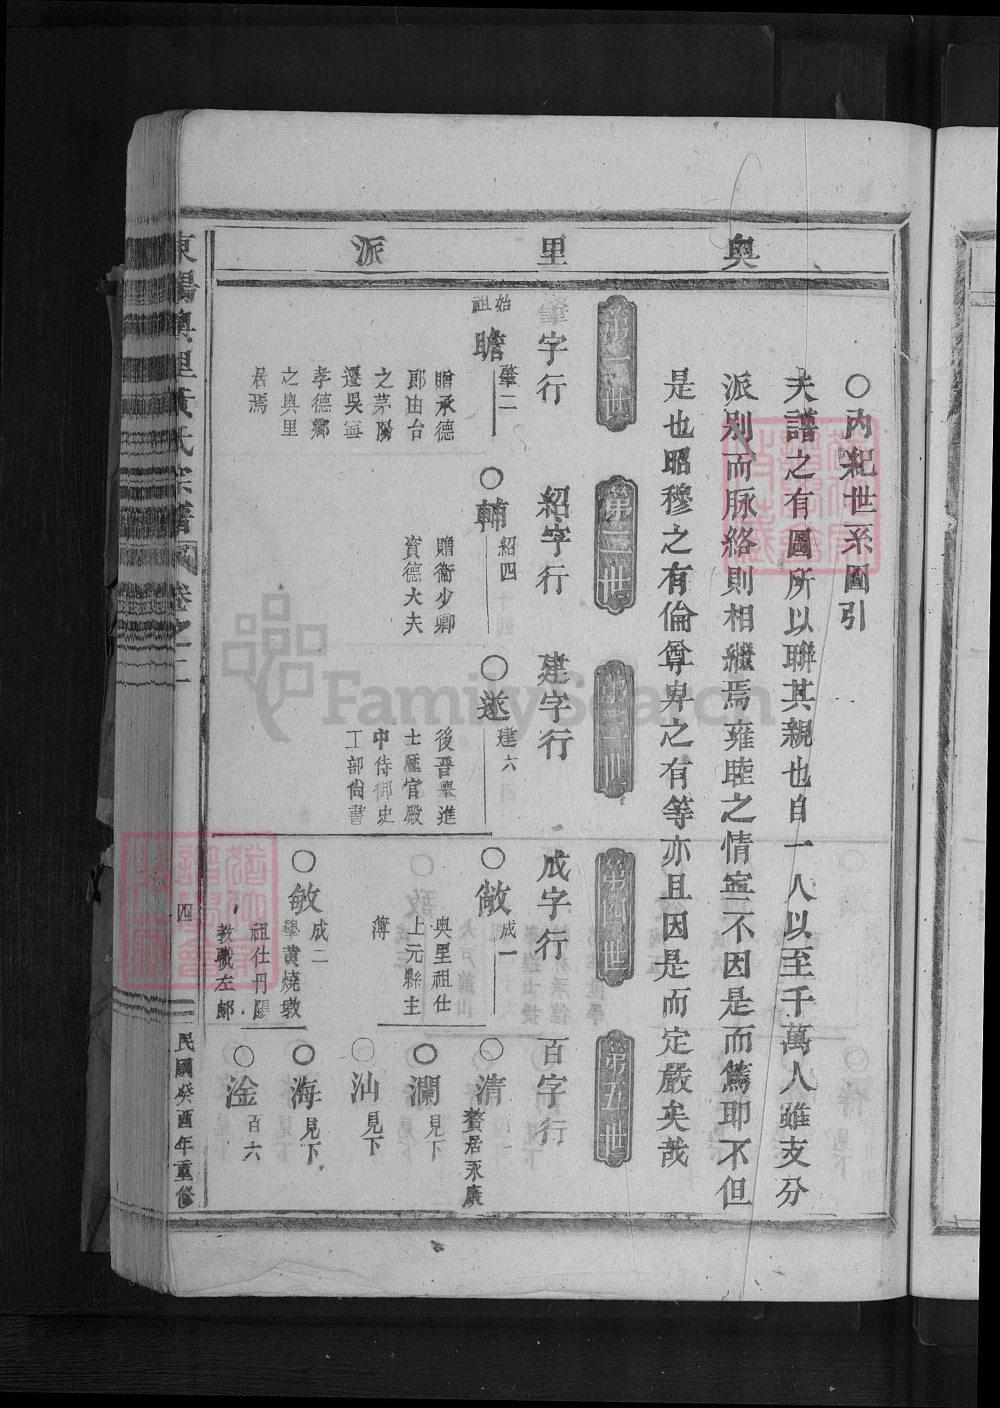 奧里派
○內紀世系圖引
夫譜之有圖所以聯其親也自一人以至千萬人雖支分
派別而脉絡則相繼焉雍睦之情寜不因是而篤耶不但
是也昭穆之有倫尊卑之有等亦且因是而定嚴矣哉
第一世
第二世
第三世
第四世
第五世
肇字行
紹字行
建字行
成字行
百字行
始祖
瞻
肇二
贈承德
郎由台
之茅陽
遷吳寜
孝德鄉
之奧里
居焉
○輔
紹四
贈衛少卿
資德大夫
○遂
建六
後晉舉進
士歷官殿
中侍御史
工部尚書
○敞
成一
奧里祖仕
上元縣主
簿
○敏
成二
黃燒墩
祖仕丹陽
教職左郎
○清
贅居永康
○瀾
見下
○汕
見下
○海
見下
○淦
百六
東陽奧里黃氏宗譜
卷之二
四
民國癸酉年重修
FamilySearch